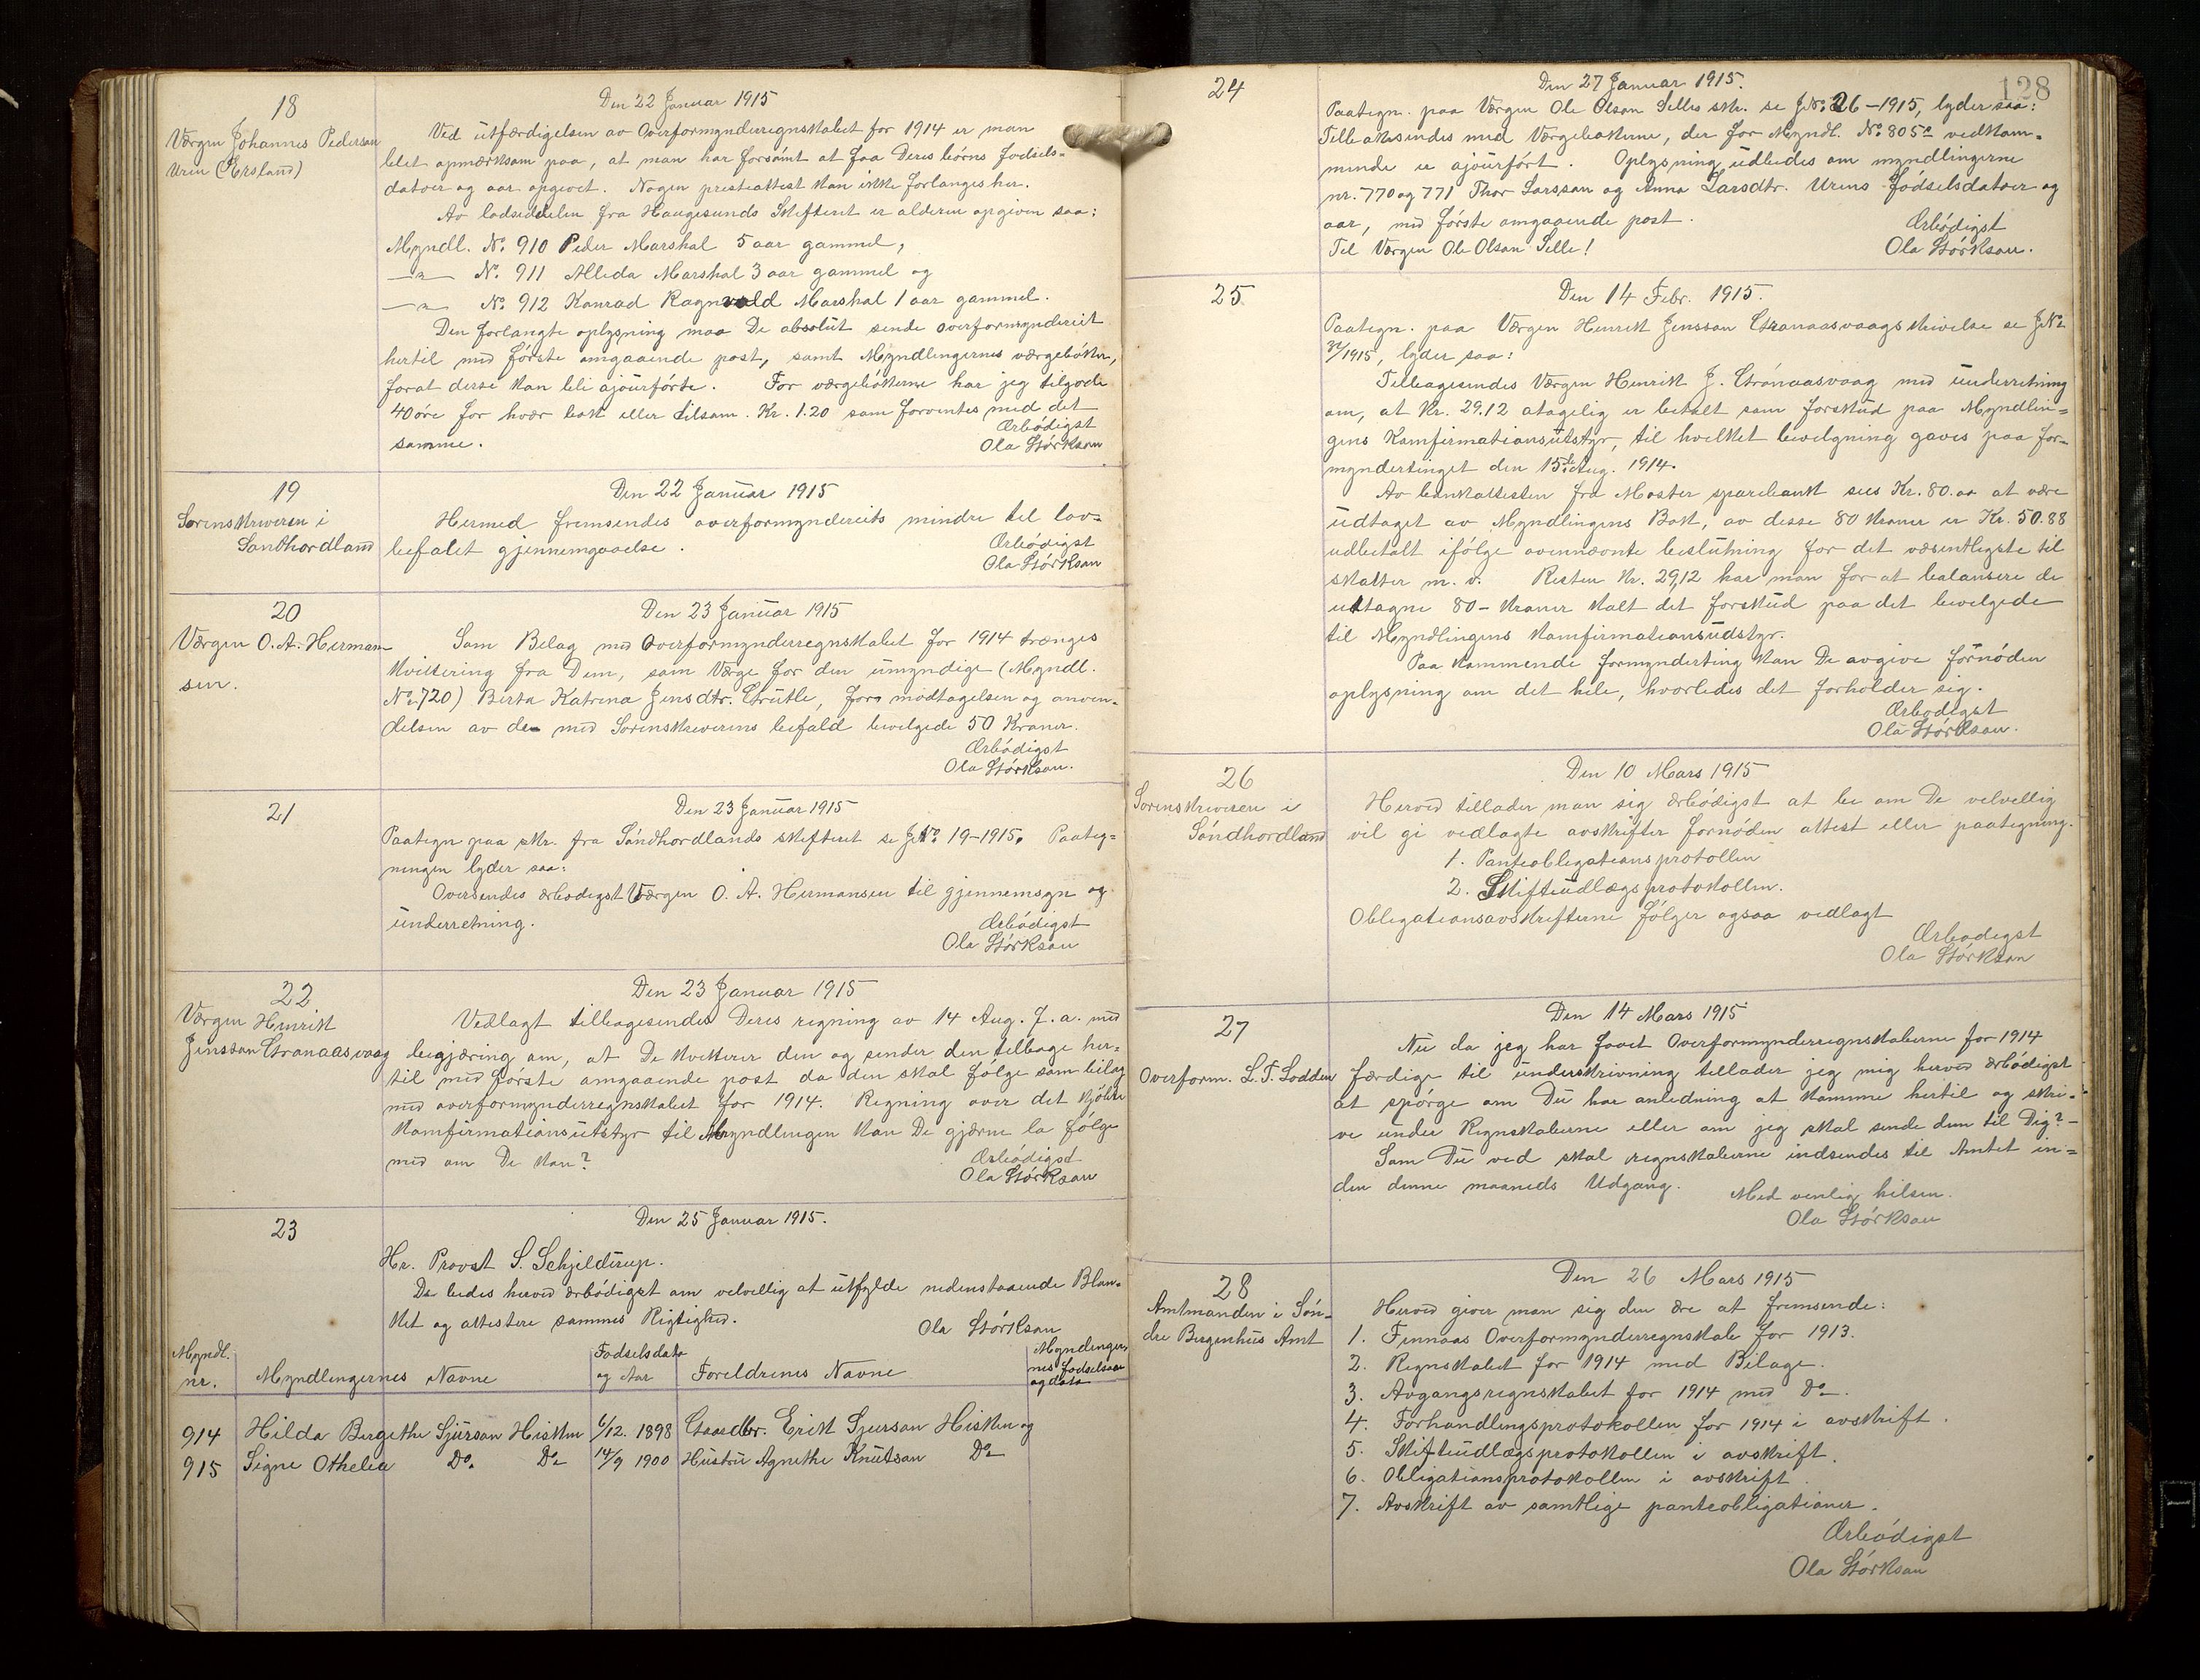 18
Værgen Johannes Pederson
Uren (Ersland)
Den 22 Januar 1915
Ved utfærdigelsen av Overformynderregnskabet for 1914 er man
blet opmærksom paa, at man har forsømt at faa Deres børns fødsels-
datoer og aar opgivet. Nogen presteattest kan ikke forlanges her.
Av lodseddelen fra Haugesunds Skifteret er alderen opgiven saa:
Myndl. No. 910 Peder Marshal 5 aar gammel,
—"— No. 911 Allida Marshal 3 aar gammel og
—"— No. 912 Konrad Ragnvald Marshal 1 aar gammel.
Den forlangte oplysning maa De absolut sende overformynderiet
hertil med første omgaaende post, samt Myndlingernes værgebøker,
forat disse kan bli ajourførte. For værgebøkerne har jeg tilgode
40 øre for hver bok eller tilsam. Kr. 1.20 som forventes med det
samme.
Ærbødigst
Ola Størkson
19
Sorenskriveren i
Søndhordland
Den 22 Januar 1915
Hermed fremsendes overformynderiets mindre til lov-
befalet gjennemgaaelse.
Ærbødigst
Ola Størkson
20
Værgen O. A. Herman
sen.
Den 23 Januar 1915
Som Bilag med Overformynderregnskabet for 1914 trænges
kvittering fra Dem, som Værge for den umyndige (Myndl.
No. 720) Berta Katrina Jensdtr. Grutle, for modtagelsen og anven-
delsen av de med Sorenskriverens befald bevilgede 50 Kroner.
Ærbødigst
Ola Størkson.
21
Den 23 Januar 1915
Paategn paa skr. fra Søndhordlands skifteret se J.No. 19-1915. Paateg-
ningen lyder saa:
Oversendes ærbødigst Værgen O. A. Hermansen til gjennemsyn og
underretning.
Ærbødigst
Ola Størkson
22
Værgen Henrik
Jensson Grønaasvaag
Den 23 Januar 1915
Vedlagt tilbagesendes Deres regning av 14 Aug. f. a. med
begjæring om, at De kvitterer den og sender den tilbage her-
til med første omgaaende post da den skal følge som bilag
med overformynderregnskabet for 1914. Regning over det kjøbte
Konfirmationsutstyr til Myndlingen kan De gjærne la følge
med om De kan?
Ærbødigst
Ola Størkson
23
Den 25 Januar 1915.
Hr. Provst S. Schjelderup.
De bedes herved ærbødigst om velvillig at utfylde nedenstaaende Blan-
ket og attestere sammes Rigtighed.
Ola Størkson
Myndl. nr. Myndlingernes Navne Fødselsdato og Aar Foreldrenes Navne Myndlinger nes fødselsaar og dato
914 Hilda Bergithe Sjurson Hisken 6/12. 1898 Gaardbr. Erik Sjurson Hisken og
915 Signe Othelia Do. Do 14/9 1900 Hustru Agnethe Knutson Do
128
24
Den 27 Januar 1915.
Paategn. paa Værgen Ole Olson Selles skr. se J.No. 26-1915, lyder saa:
Tilbakesendes med Værgebøkerne, der for Myndl. No. 805 vedkom-
mende er ajourført. Oplysning udbedes om myndlingerne
nr. 770 og 771 Thor Larsson og Anna Larsdtr. Urens Fødselsdatoer og
aar, med første omgaaende post.
Til Værgen Ole Olson Selle!
Ærbødigst
Ola Størkson.
25
Den 14 Febr. 1915.
Paategn. paa Værgen Henrik Jensson Grønaasvaags skrivelse se J.No
/1915, lyder saa:
Tilbagesendes Værgen Henrik J. Grønaasvaag med underretning
om, at Kr. 29.12 antagelig er betalt som forskud paa Myndlin-
gens Konfirmationsutstyr, til hvilket bevilgning gaves paa for-
myndertinget den 15de Aug. 1914.
Av bankattesten fra Moster sparebank sees Kr. 80.00 at være
udtaget av Myndlingens Bok, av disse 80 kroner er Kr. 50.88
udbetalt ifølge ovennævnte beslutning for det væsentligste til
skatter m. v. Resten Kr. 29,12 har man for at balansere de
udtagne 80- kroner kalt det forskud paa det bevilgede
til Myndlingens konfirmationsudstyr.
Paa kommende formynderting kan De avgive fornøden
oplysning om det hele, hvorledes det forholder sig.
Ærbødigst
Ola Størkson.
26
Sorenskriveren i
Søndhordland
Den 10 Mars 1915
Herved tillader man sig ærbødigst at be om De velvillig
vil gi vedlagte avskrifter fornøden attest eller paategning.
1. Panteobligationsprotokollen
2. Skifteudlægsprotokollen.
Obligationsavskrifterne følger ogsaa vedlagt
Ærbødigst
Ola Størkson
27
Overform. L. T. Lodden
Den 14 Mars 1915
Nu da jeg har faaet Overformynderregnskaberne for 1914
færdige til underskrivning tillader jeg mig herved ærbødigst
at spørge om Du har anledning at komme hertil og skri-
ve under Regnskaberne eller om jeg skal sende dem til Dig?-
Som Du ved skal regnskaberne indsendes til Amtet in-
den denne maaneds Udgang.
Med venlig hilsen.
Ola Størkson
28
Amtmanden i Søn-
dre Bergenhus Amt
Den 26 Mars 1915
Herved giver man sig den ære at fremsende:
1. Finnaas Overformynderregnskab for 1913.
2. Regnskabet for 1914 med Bilage.
3. Avgangsregnskabet for 1914 med Do.
4. Forhandlingsprotokollen for 1914 i avskrift.
5. Skifteudlægsprotokollen i avskrift.
6. Obligationsprotokollen i avskrift.
7. Avskrift av samtlige panteobligationer.
Ærbødigst
Ola Størkson